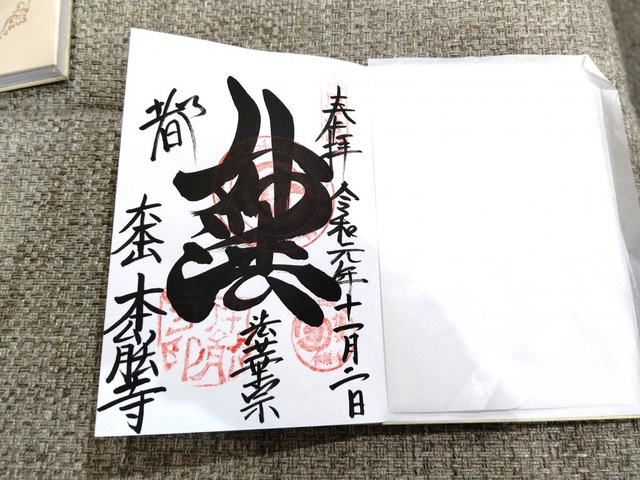 奉拝 令和元年十一月二日
法華宗
都
大本山 本能寺